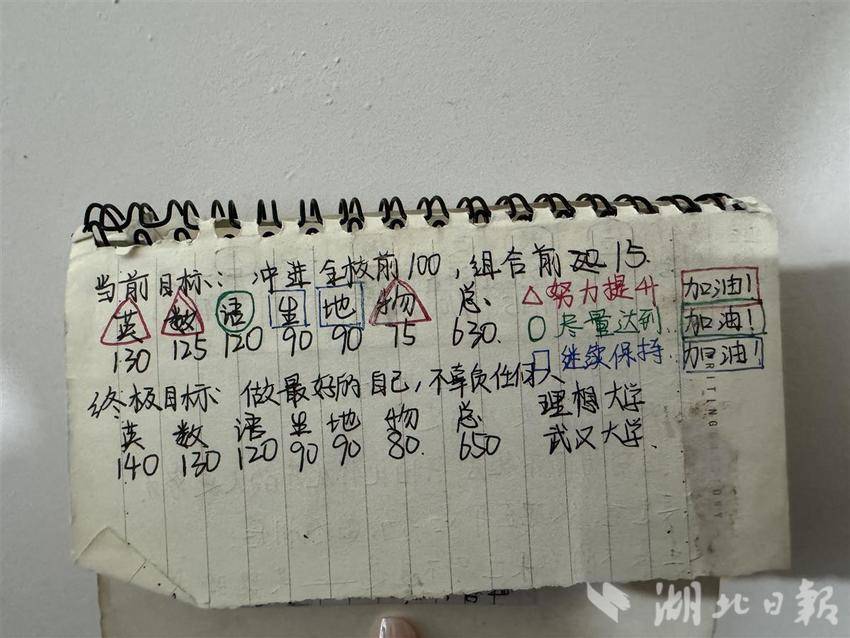 当前目标: 冲进全校前100,组合前15.
英 数 语 生 地 物 总 △努力提升 加油!
130 125 120 90 90 75 630. ○尽量达到. 加油!
□继续保持. 加油!
终极目标: 做最好的自己,不辜负任何人
英 数 语 生 地 物 总 理想大学
140 130 120 90 90 80. 650 武汉大学.
湖北日报